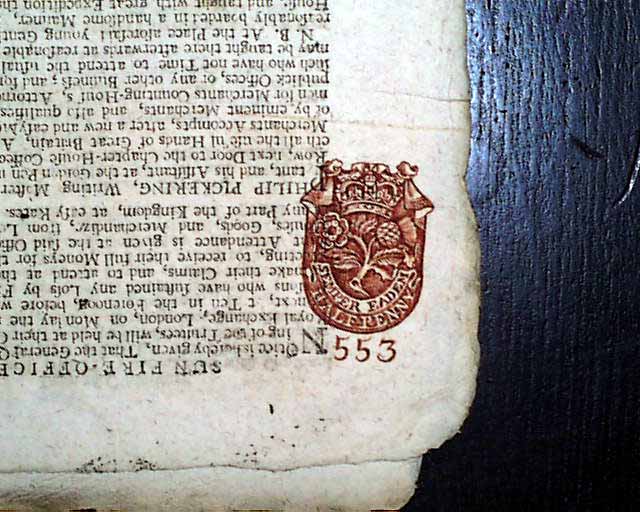 SUN FIRE-OFFICE
NOtice is hereby given, That the General Q
ing of the Truſtees, will be held at their
Royal Exchange, London, on Monday the
next, at Ten in the Forenoon, before w
ſons who have ſuſtained any Loſs by F
make their Claims, and to attend at th
ting, to receive their full Moneys for th
at Attendance is given at the ſaid Offi
Goods, and Merchandize, from L
any Part of the Kingdom, at eaſy Rates.
PHILIP PICKERING, Writing Maſter
tant, and his Aſſiſtant, at the Golden Pen
Row, next Door to the Chapter-Houſe Coffee
eth all the uſeful Hands of Great Britain, A
Merchants Accompts, after a new and eaſy M
of by eminent Merchants, and alſo qualifies
men for Merchants Counting-Houſ s, Attorne
publick Offices, or any other Buſineſs; and fo
ſuch who have not Time to attend the uſual
may be taught there afterwards at reaſonable
N. B. At the Place aforeſaid young Gentl
reaſonably boarded in a handſome Manner,
Houſe, and taught with great Expedition th
SEMPER EADEM
HALFPENNY
553